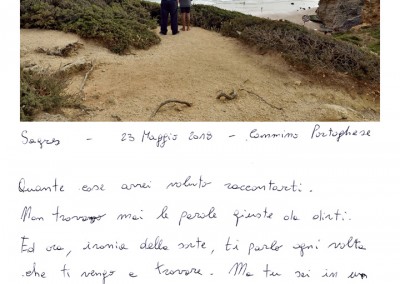 Sagres - 23 Maggio 2018 - Cammino Portoghese
Quante cose avrei voluto raccontarti.
Non trovavo mai le parole giuste da dirti.
Ed ora, ironia della sorte, ti parlo ogni volta
che ti vengo a trovare. Ma tu sei in un